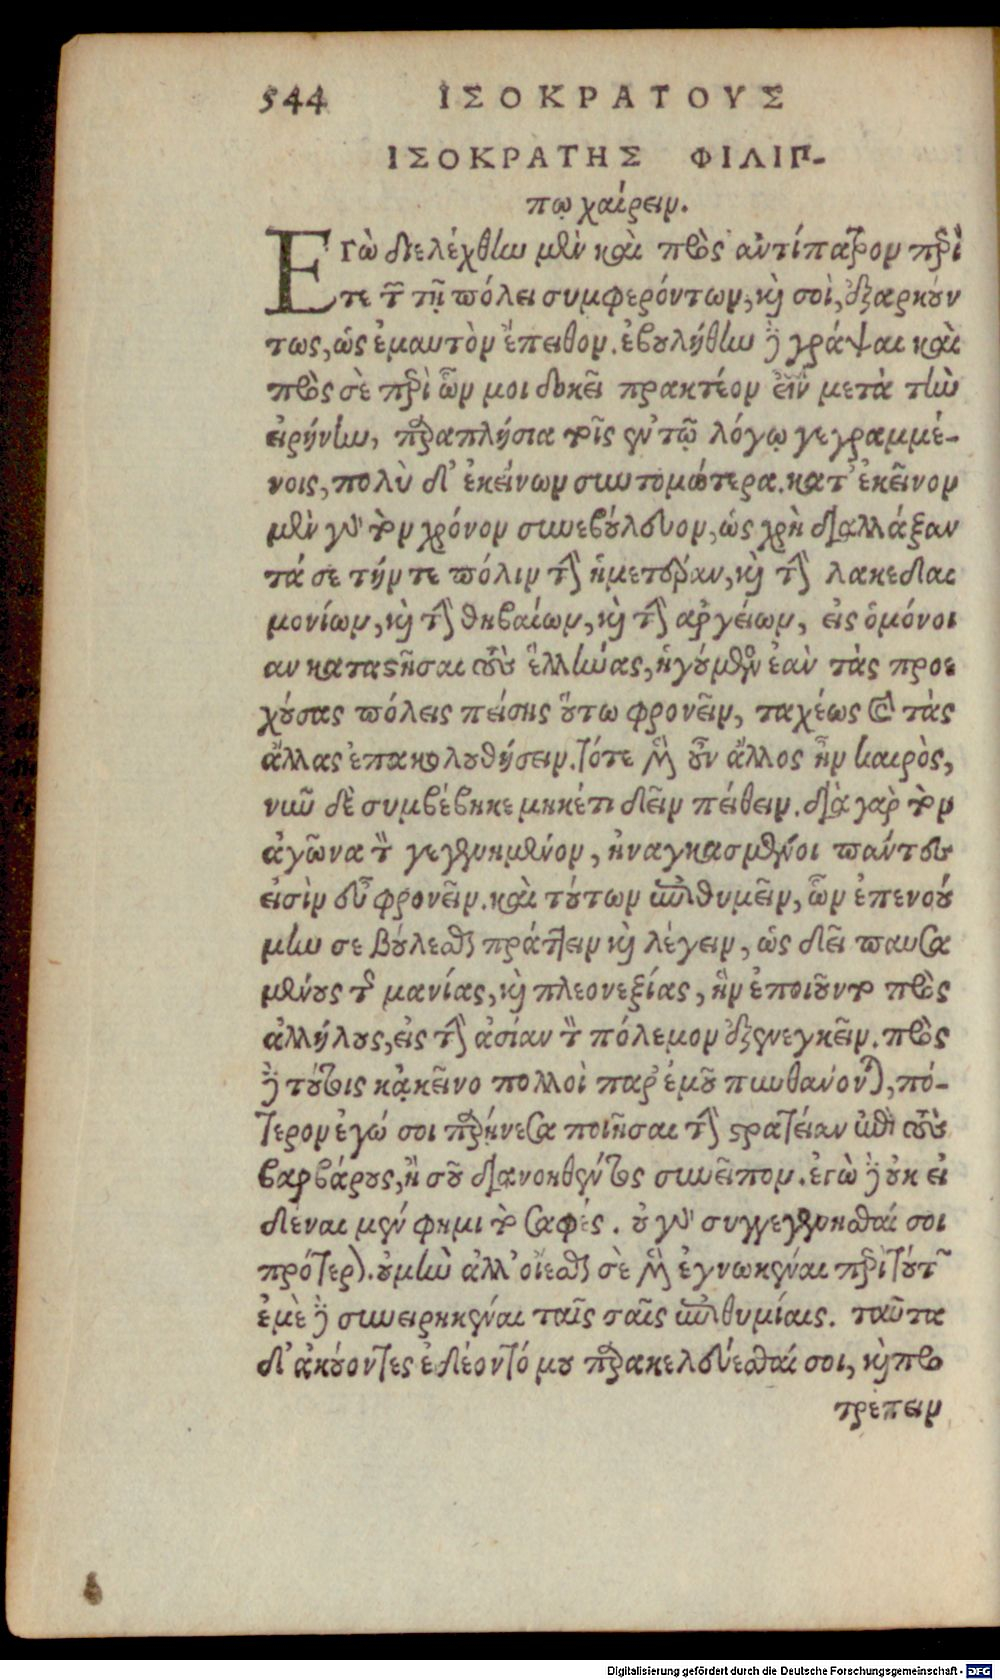 544 ΙΣΟΚΡΑΤΟΥΣ
ΙΣΟΚΡΑΤΗΣ ΦΙΛΙΠ-
πῳ χαίρειν.
Εγὼ διελέχθην μὲν καὶ πρὸς ἀντίπατρον περὶ
τε τῶν τῇ πόλει συμφερόντων, καὶ σοὶ, ἐξαρκούν
τως, ὡς ἐμαυτὸν ἔπειθον. ἐβουλήθην δὲ γράψαι καὶ
πρὸς σὲ περὶ ὧν μοι δοκεῖ πρακτέον εἶναι μετὰ τὴν
εἰρήνην, παραπλήσια τοῖς ἐν τῷ λόγῳ γεγραμμέ-
νοις, πολὺ δ' ἐκείνων συντομώτερα. κατ' ἐκεῖνον
μὲν γὰρ τὸν χρόνον συνεβούλευον, ὡς χρὴ διαλλάξαν
τά σε τήν τε πόλιν τὴν ἡμετέραν, καὶ τὴν λακεδαι
μονίων, καὶ τὴν θηβαίων, καὶ τὴν ἀργείων, εἰς ὁμόνοι
αν καταστῆσαι τοὺς ἕλληνας, ἡγούμενος ἐὰν τὰς προε
χούσας πόλεις πείσῃς οὕτω φρονεῖν, ταχέως καὶ τὰς
ἄλλας ἐπακολουθήσειν. τότε μὲν οὖν ἄλλος ἦν καιρὸς,
νῦν δὲ συμβέβηκε μηκέτι δεῖν πείθειν. διὰ γὰρ τὸν
ἀγῶνα τὸν γεγενημένον, ἠναγκασμένοι πάντες
εἰσὶν εὖ φρονεῖν. καὶ τούτων ἐπιθυμεῖν, ὧν ἐπενοού
μην σε βούλεσθαι πράττειν καὶ λέγειν, ὡς δεῖ παυσα
μένους τῆς μανίας, καὶ πλεονεξίας, ἣν ἐποιοῦντο πρὸς
ἀλλήλους, εἰς τὴν ἀσίαν τὸν πόλεμον ἐξενεγκεῖν. πρὸς
δὲ τούτοις κᾀκεῖνο πολλοὶ παρ' ἐμοῦ πυνθάνονται, πό-
τερον ἐγώ σοι παρῄνεσα ποιῆσαι τὴν στρατείαν ἐπὶ τοὺς
βαρβάρους, ἢ σοῦ διανοηθέντος συνεῖπον. ἐγὼ δὲ οὐκ εἰ
δέναι μέν φημι τὸ σαφές. οὐ γὰρ συγγεγενῆσθαί σοι
πρότερον. οὐ μὴν ἀλλ' οἴεσθαι σὲ μὲν ἐγνωκέναι περὶ τούτων
ἐμὲ δὲ συνειρηκέναι ταῖς σαῖς ἐπιθυμίαις. ταῦτα
δ' ἀκούοντες ἐδέοντό μου παρακελεύεσθαί σοι, καὶ προ
τρέπειν
Digitalisierung gefördert durch die Deutsche Forschungsgemeinschaft - DFG